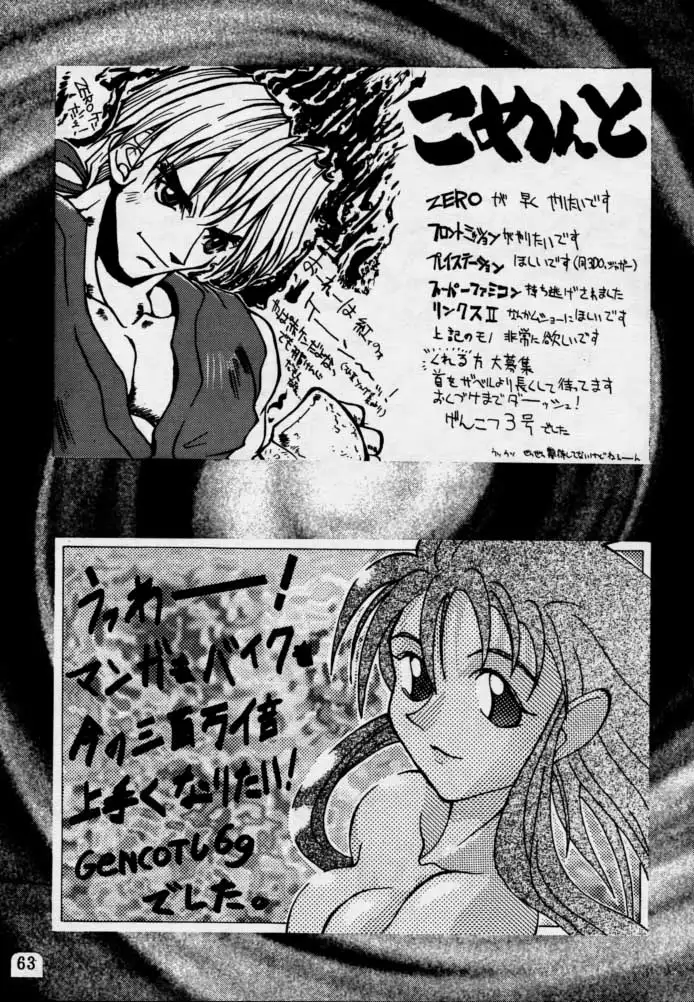 こめんと
ZEROが早くやりたいです
フロントミッションがやりたいです
プレイステーションほしいです
スーパーファミコン持ち逃げされました
リンクスⅡ
ほしいです
上記のモノ非常に欲しいです
くれる方大募集
首をガベルより長くして待ってます
おくづけまでダーッシュ!
げんこつ3号でした
うっわー!
マンガもバイクも
今の三百万倍
上手くなりたい!
GENCOTU69
でした。
63